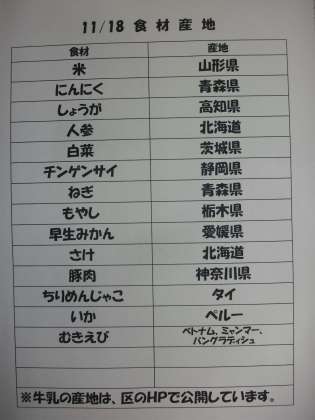 11/18 食材産地
食材 産地
米 山形県
にんにく 青森県
しょうが 高知県
人参 北海道
白菜 茨城県
チンゲンサイ 静岡県
ねぎ 青森県
もやし 栃木県
早生みかん 愛媛県
さけ 北海道
豚肉 神奈川県
ちりめんじゃこ タイ
いか ペルー
むきえび ベトナム、ミャンマー、
バングラディシュ
※牛乳の産地は、区のHPで公開しています。